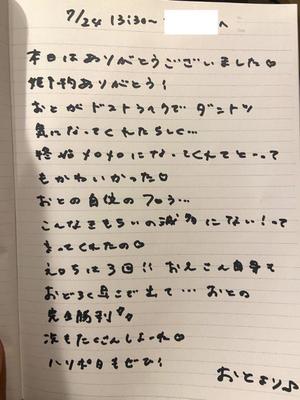 7/24 13:30〜 へ
本日はありがとうございました♡
予約ありがとう!
おとがドストライクでダントツ
気になってくれたらしく…
終始メロメロになってくれてとーって
もかわいかった♡
おとの自慢のフロう…
こんなきもちいの滅多にない!って
まってくれたの♡
えろちは3回!! おんこん自身も
おどろく早こで出て…おとの
完全勝利
次もたくさんしよーね♡
ハリポタもぜひ!
おとより♪